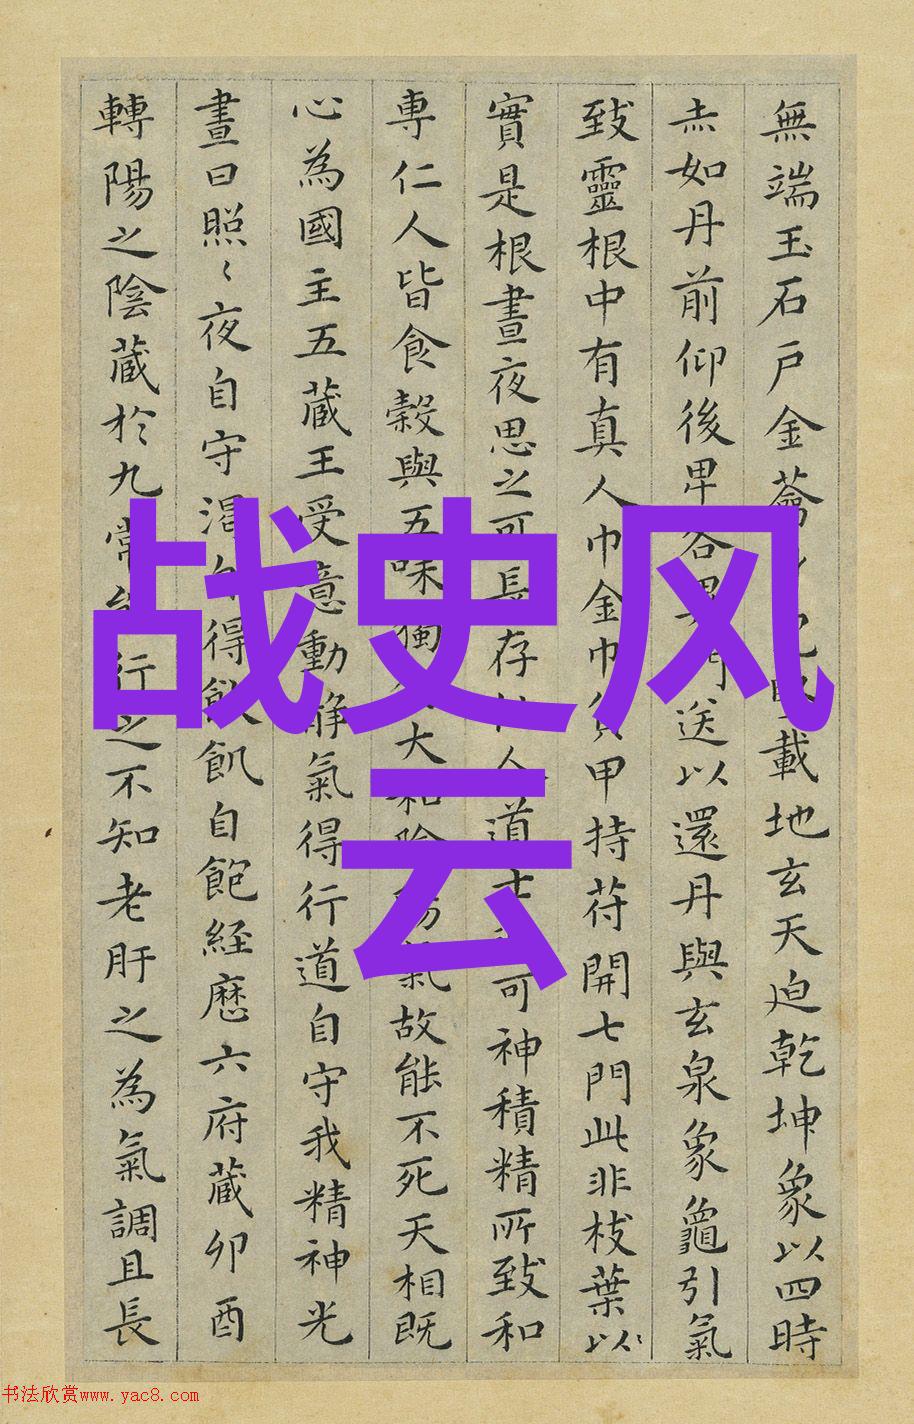 無端玉石戶金籥載地玄天迫乾坤象以四時
赤如丹前仰後卑各異門送以還丹與玄泉象龜引氣
致靈根中有真人巾金巾負甲持苻開七門此非枝葉以
實是根晝夜思之可長存仙人道士可神積精所致和
專仁人皆食穀與五味獨大和陰陽氣故能不死天相既
心為國主五藏王受意動靜氣得行道自守我精神光
晝日照〻夜自守渴自得飲飢自飽經歷六府藏卯酉
轉陽之陰藏於九常能行之不知老肝之為氣調且長
战史风
云
书法欣赏www.yac8.com